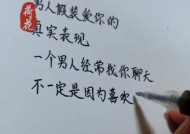 荷花
男人假装爱你的
真实表现
一个男人经常找你聊天
不一定是因为喜欢